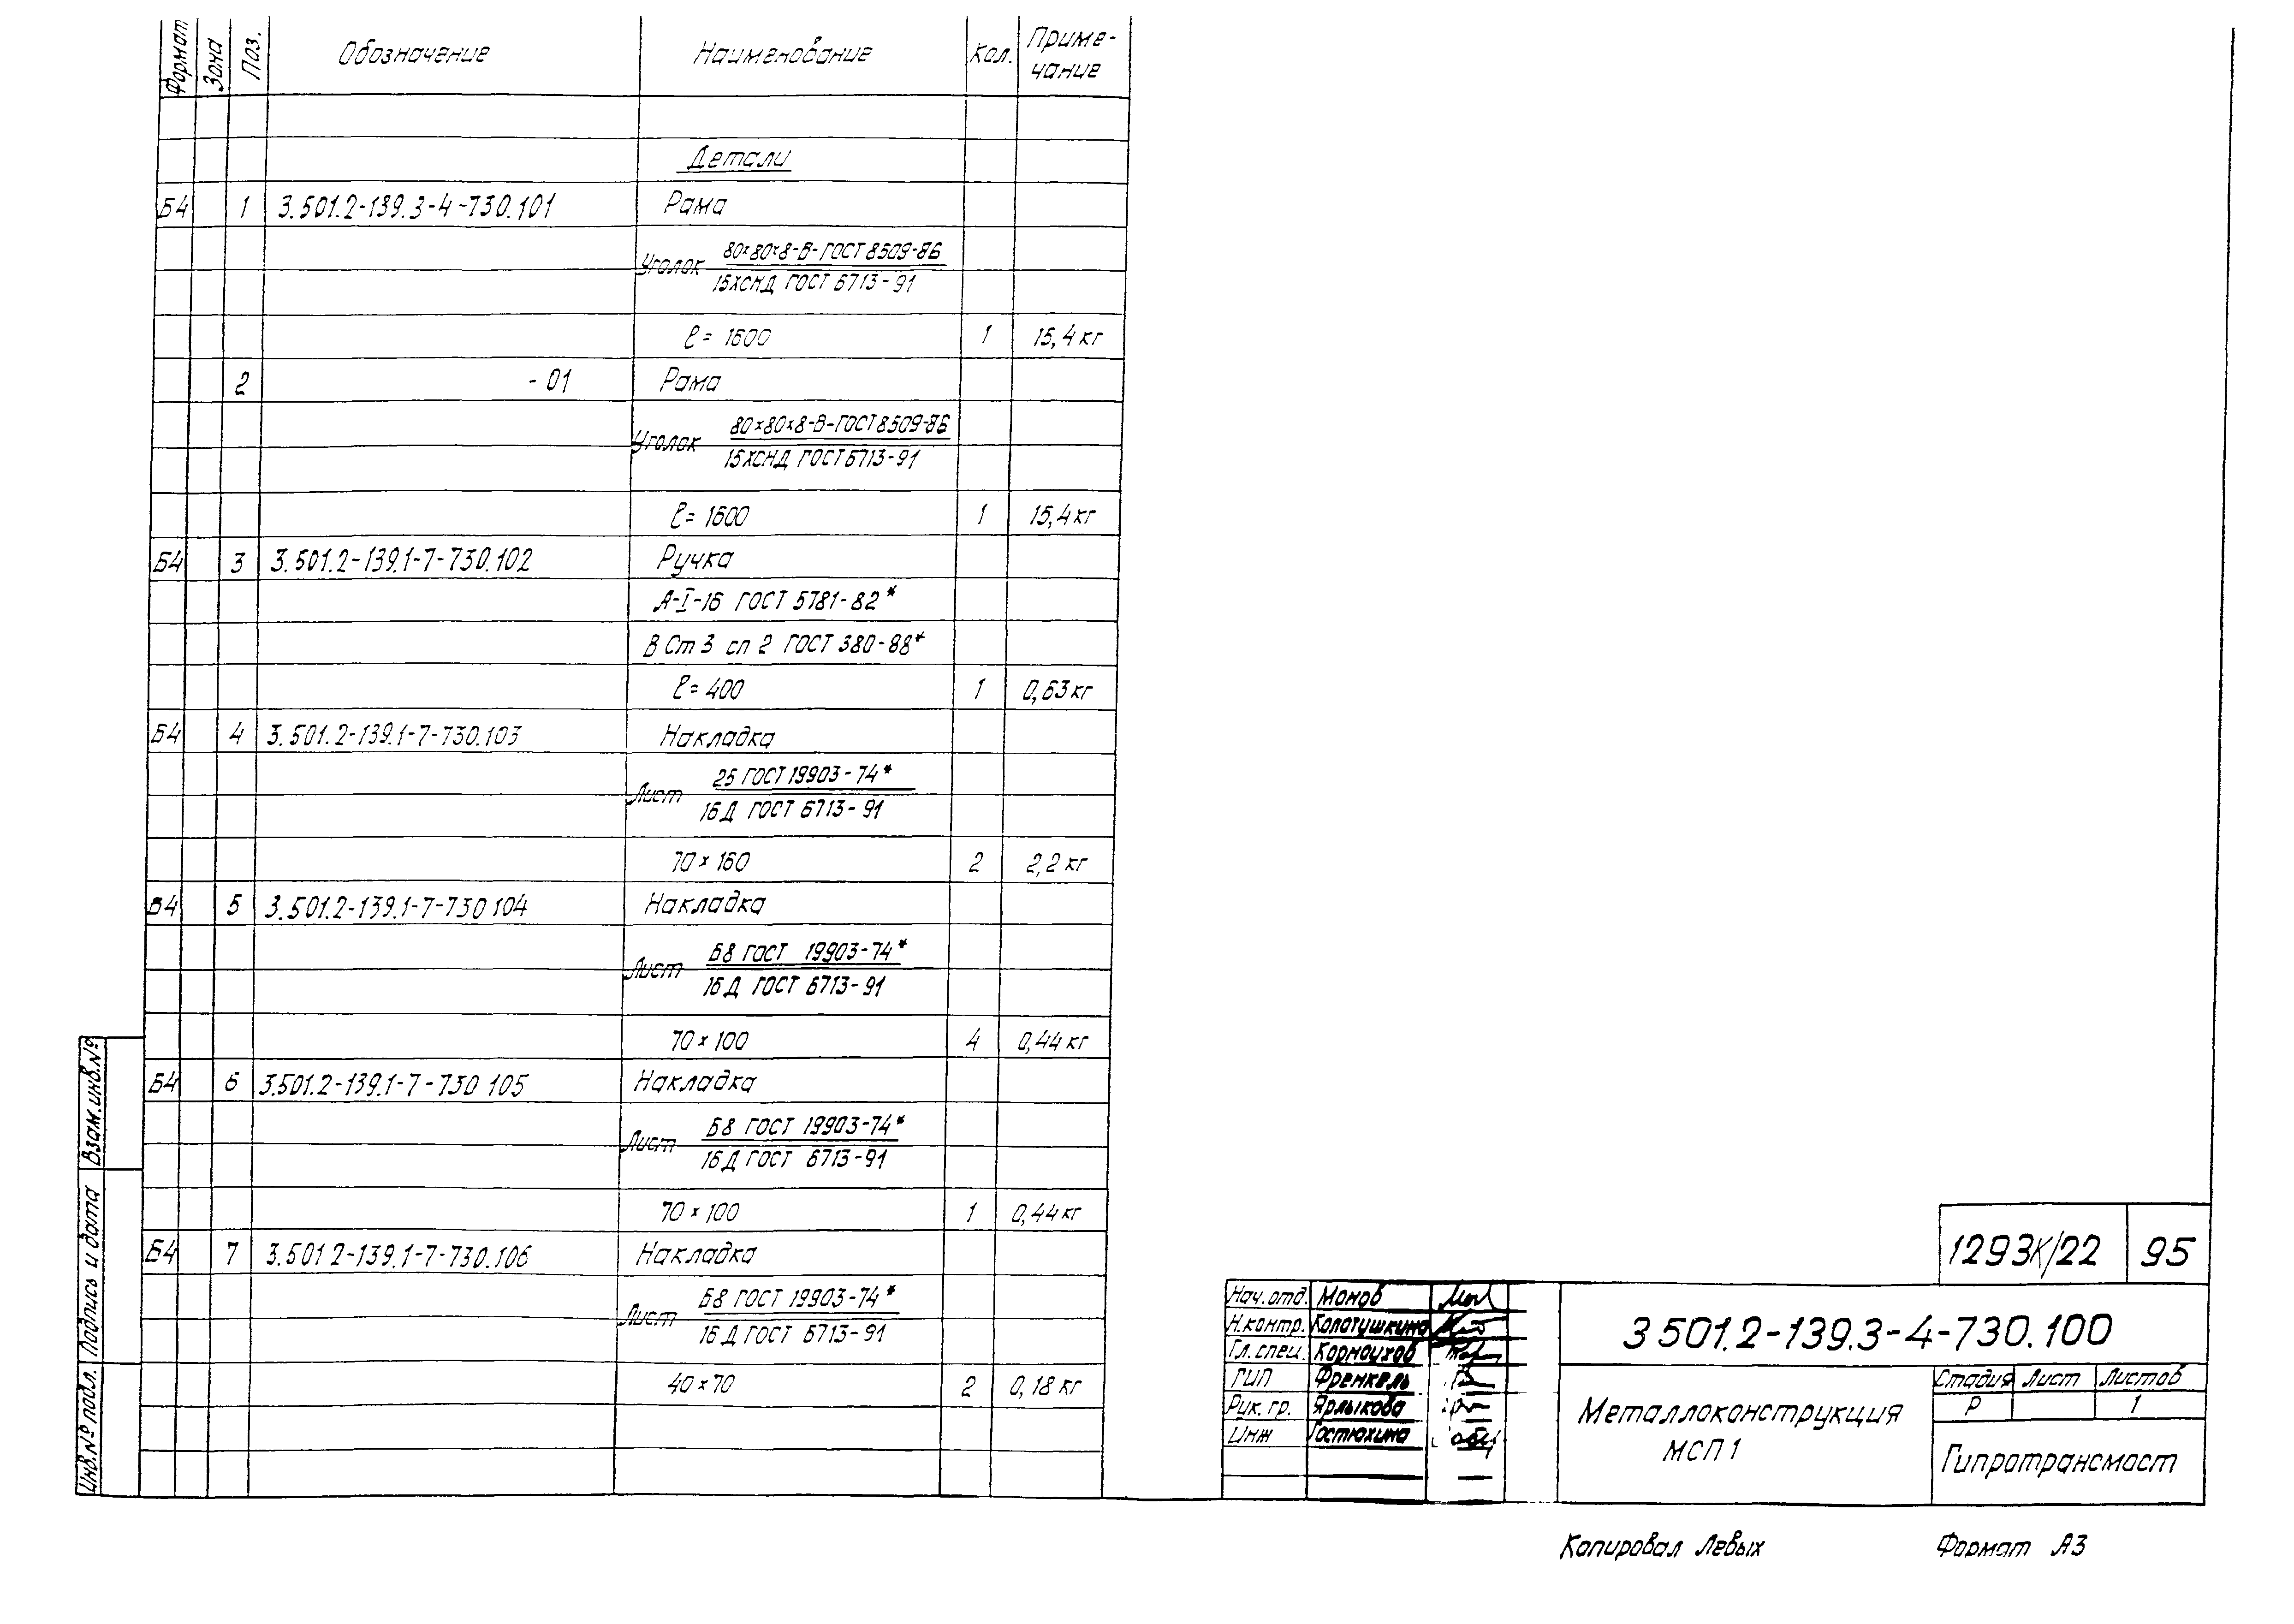 Формат Зона Поз. Обозначение Наименование Кол. Приме-
чание
Детали
Б4 1 3.501.2-139.3-4-730.101 Рама
Уголок 80×80×8-В-ГОСТ 8509-86
15ХСНД ГОСТ 6713-91
ℓ= 1600 1 15,4 кг
2 -01 Рама
Уголок 80×80×8-В-ГОСТ 8509-86
15ХСНД ГОСТ 6713-91
ℓ= 1600 1 15,4 кг
Б4 3 3.501.2-139.1-7-730.102 Ручка
А-I-16 ГОСТ 5781-82*
В Ст 3 сп 2 ГОСТ 380-88*
ℓ= 400 1 0,63 кг
Б4 4 3.501.2-139.1-7-730.103 Накладка
Лист 25 ГОСТ 19903-74*
16Д ГОСТ 6713-91
70×160 2 2,2 кг
Б4 5 3.501.2-139.1-7-730 104 Накладка
Лист Б8 ГОСТ 19903-74*
16Д ГОСТ 6713-91
70×100 4 0,44 кг
Б4 6 3.501.2-139.1-7-730 105 Накладка
Лист Б8 ГОСТ 19903-74*
16Д ГОСТ 6713-91
70×100 1 0,44 кг
Б4 7 3.501 2-139.1-7-730.106 Накладка
Лист Б8 ГОСТ 19903-74*
16Д ГОСТ 6713-91
40×70 2 0,18 кг
Взам.инв.№
Подпись и дата
Инв.№ подл.
1293К/22 95
Нач.отд. Монов
Н.контр. Колотушкина
Гл.спец. Кормоухов
ГИП Френкель
Рук.гр. Ярлыкова
Инж Гостюхина
3 501.2-139.3-4-730.100
Металлоконструкция
МСП 1
Стадия Лист Листов
Р 1
Гипротрансмост
Копировал Левых Формат А3